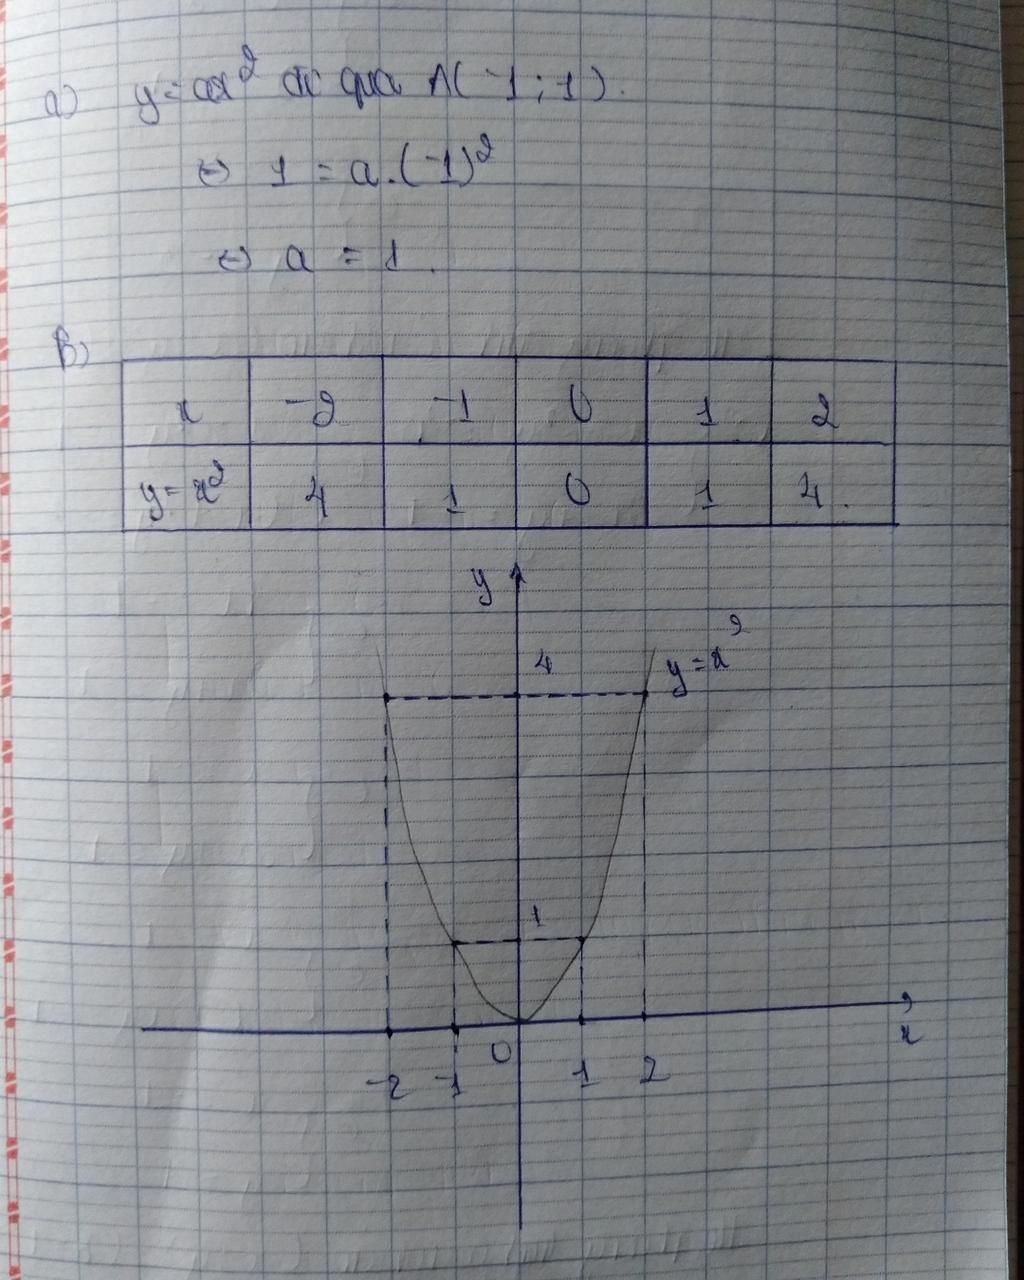 a) y = ax² đi qua A( -1 ; 1 ).
⇔ 1 = a.(-1)²
⇔ a = 1.
b)
x -2 -1 0 1 2
y = x² 4 1 0 1 4.
y
4 y = x²
1
x
0
-2 -1 1 2